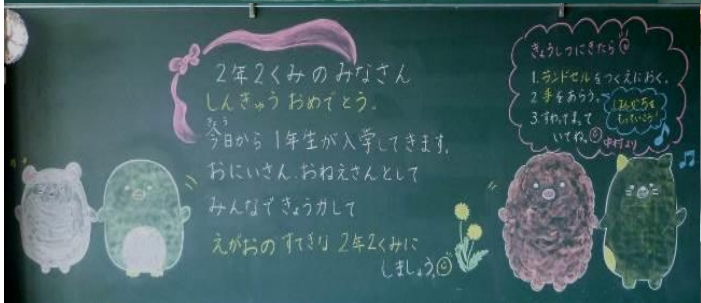 2年2くみのみなさん
しんきゅうおめでとう。
きょう
今日から1年生が入学してきます。
おにいさん、おねえさんとして
みんなできょうカして
えがおのすてきな2年2くみに
しましょう。
きょうしつにきたら
1.ランドセルをつくえにおく。
2.手をあらう。
はんかちを
もっていこう!
3.すわってまって
いてね。
中村より